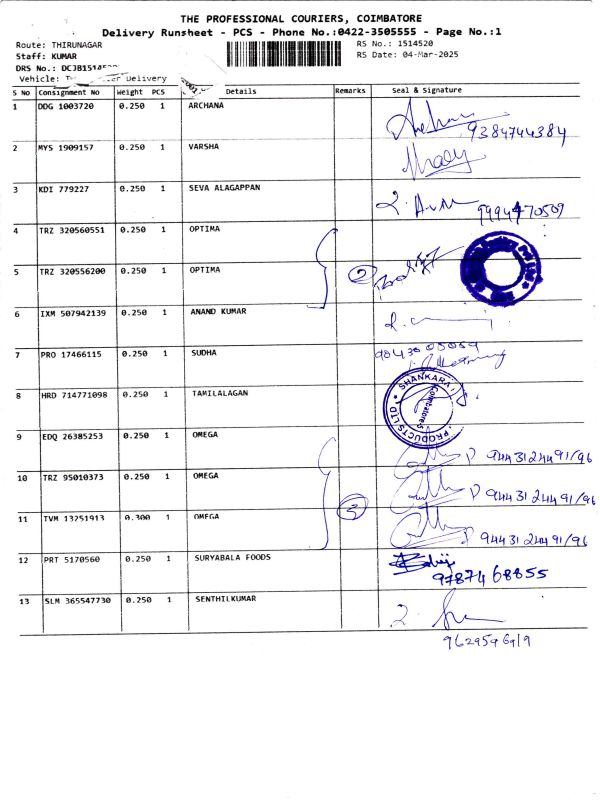 THE PROFESSIONAL COURIERS, COIMBATORE
Delivery Runsheet - PCS - Phone No.:0422-3505555 - Page No.:1
Route: THIRUNAGAR RS No.: 1514520
Staff: KUMAR RS Date: 04-Mar-2025
DRS No.:
Vehicle: Delivery
S No Consignment No Weight PCS Details Remarks Seal & Signature
1 DDG 1003720 0.250 1 ARCHANA
9384744384
2 MYS 1909157 0.250 1 VARSHA
3 KDI 779227 0.250 1 SEVA ALAGAPPAN
9994470509
4 TRZ 320560551 0.250 1 OPTIMA
5 TRZ 320556200 0.250 1 OPTIMA 2
6 IXM 507942139 0.250 1 ANAND KUMAR
7 PRO 17466115 0.250 1 SUDHA
8 HRD 714771098 0.250 1 TAMILALAGAN
SHANKARA PRODUCTS (P) LTD
Coimbatore-5
9 EDQ 26385253 0.250 1 OMEGA 9443124491/96
10 TRZ 95010373 0.250 1 OMEGA 9443124491/96
11 TVM 13251913 0.300 1 OMEGA 3 9443124491/96
12 PRT 5170560 0.250 1 SURYABALA FOODS
9787468855
13 SLM 365547730 0.250 1 SENTHILKUMAR